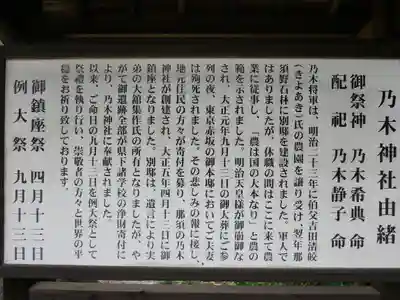 乃木神社由緒
御祭神 乃木希典 命
配祀 乃木静子 命
乃木将軍は、明治二十三年に伯父吉田清皎
(きよあき)氏の農園を譲り受け、翌年那
須野石林に別邸を建設されました。軍人で
はありましたが、休職の間はここに来て農
業に従事し、「農は国の大本なり」と農の
範を示されました。明治天皇様が御崩御な
され、大正元年九月十三日の御大葬にご参
列の夜、東京赤坂の御本邸においてご夫妻
は殉死されました。その悲しみの報に接し、
地元住民の方々が寄付を募り、那須の乃木
神社が創建され、大正五年四月十三日に御
鎮座となりました。別邸は、遺言により実
弟の大館集作氏の所有となりましたが、や
がて御遺跡全部が県下諸学校の浄財寄付に
より、乃木神社に奉献されました。
以来、ご命日の九月十三日を例大祭として
祭礼を執り行い、崇敬者の方々と世界の平
穏をお祈り致しております。
御鎮座祭 四月十三日
例大祭 九月十三日